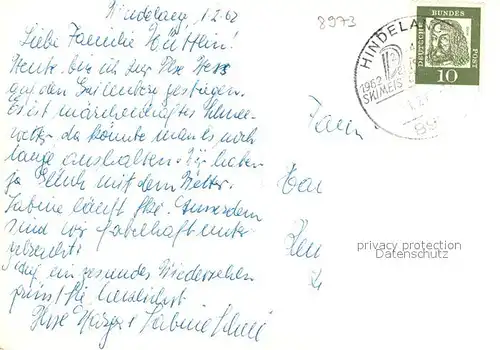 Hindelang, 1.2.62
8973
Liebe Familie Hüttlin!
Heute bin ich zur Ilse Hess
auf den Gailenberg gestiegen.
Es ist märchenhaftes Schnee-
wetter, da könnte man es noch
lange aushalten. Wir haben
ja Glück mit dem Wetter.
Sabine läuft Ski. Ausserdem
sind wir fabelhaft unter-
gebracht!
Auf ein gesundes Wiedersehen
grüsst Sie herzlichst
Sabine
HINDELANG
1962
SKIMEIS
89
DEUTSCHE
BUNDES
POST
10
Fam
privacy protection
Datenschutz